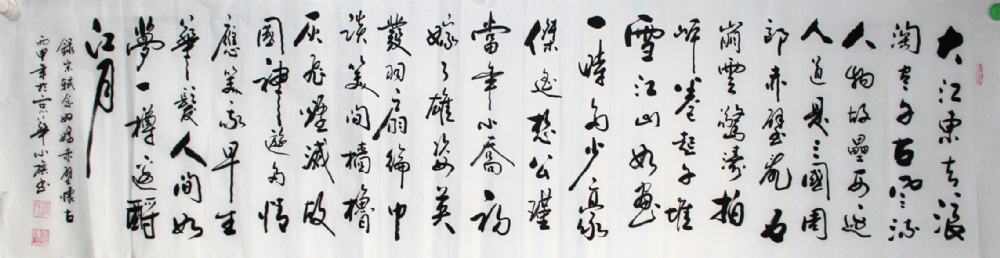 大江東去浪
淘盡千古風流
人物故壘西邊
人道是三國周
郎赤壁亂石
崩雲驚濤拍
岸卷起千堆
雪江山如畫
一時多少豪
傑遙想公瑾
當年小喬初
嫁了雄姿英
發羽扇綸巾
談笑間檣櫓
灰飛煙滅故
國神遊多情
應笑我早生
華髮人間如
夢一樽還酹
江月
錄宋軾念奴嬌赤壁懷古
丙申年於京華小康書